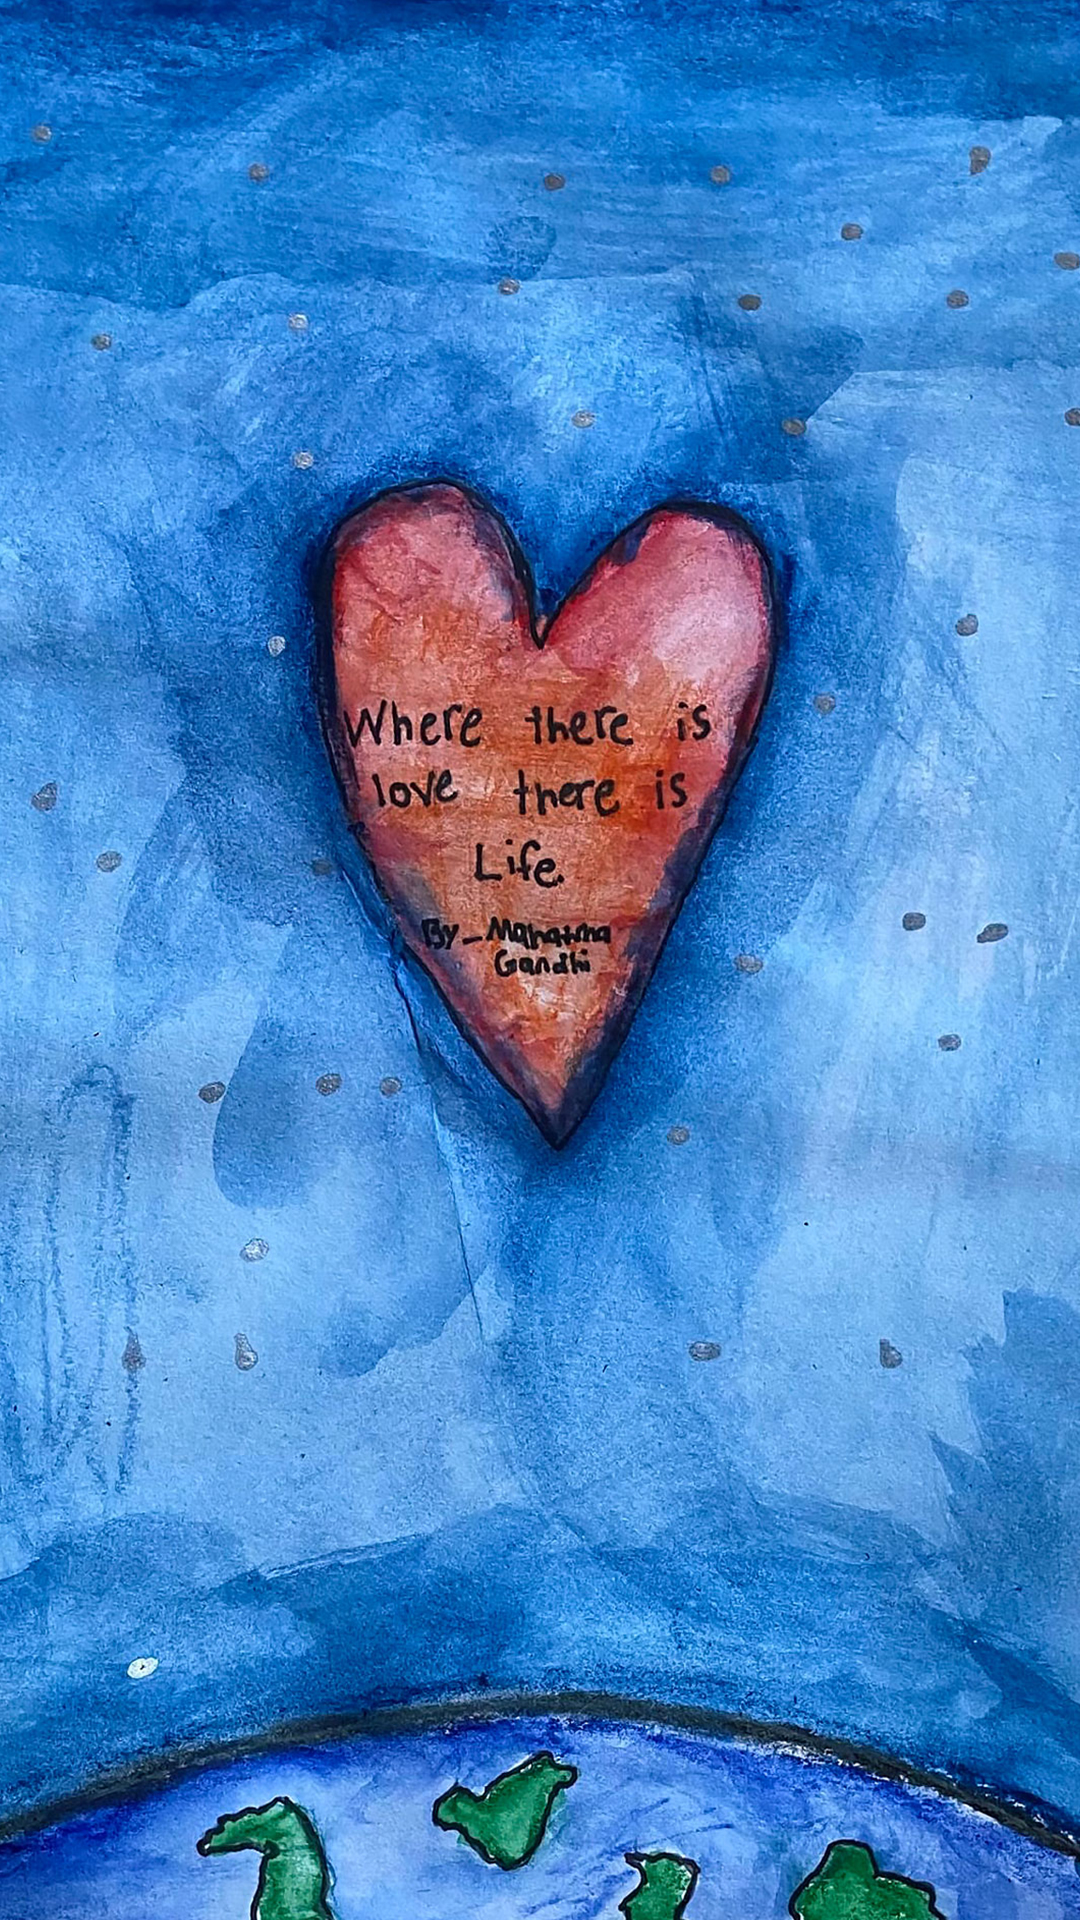 Where there is
love there is
Life.
By_Mahatma
Gandhi